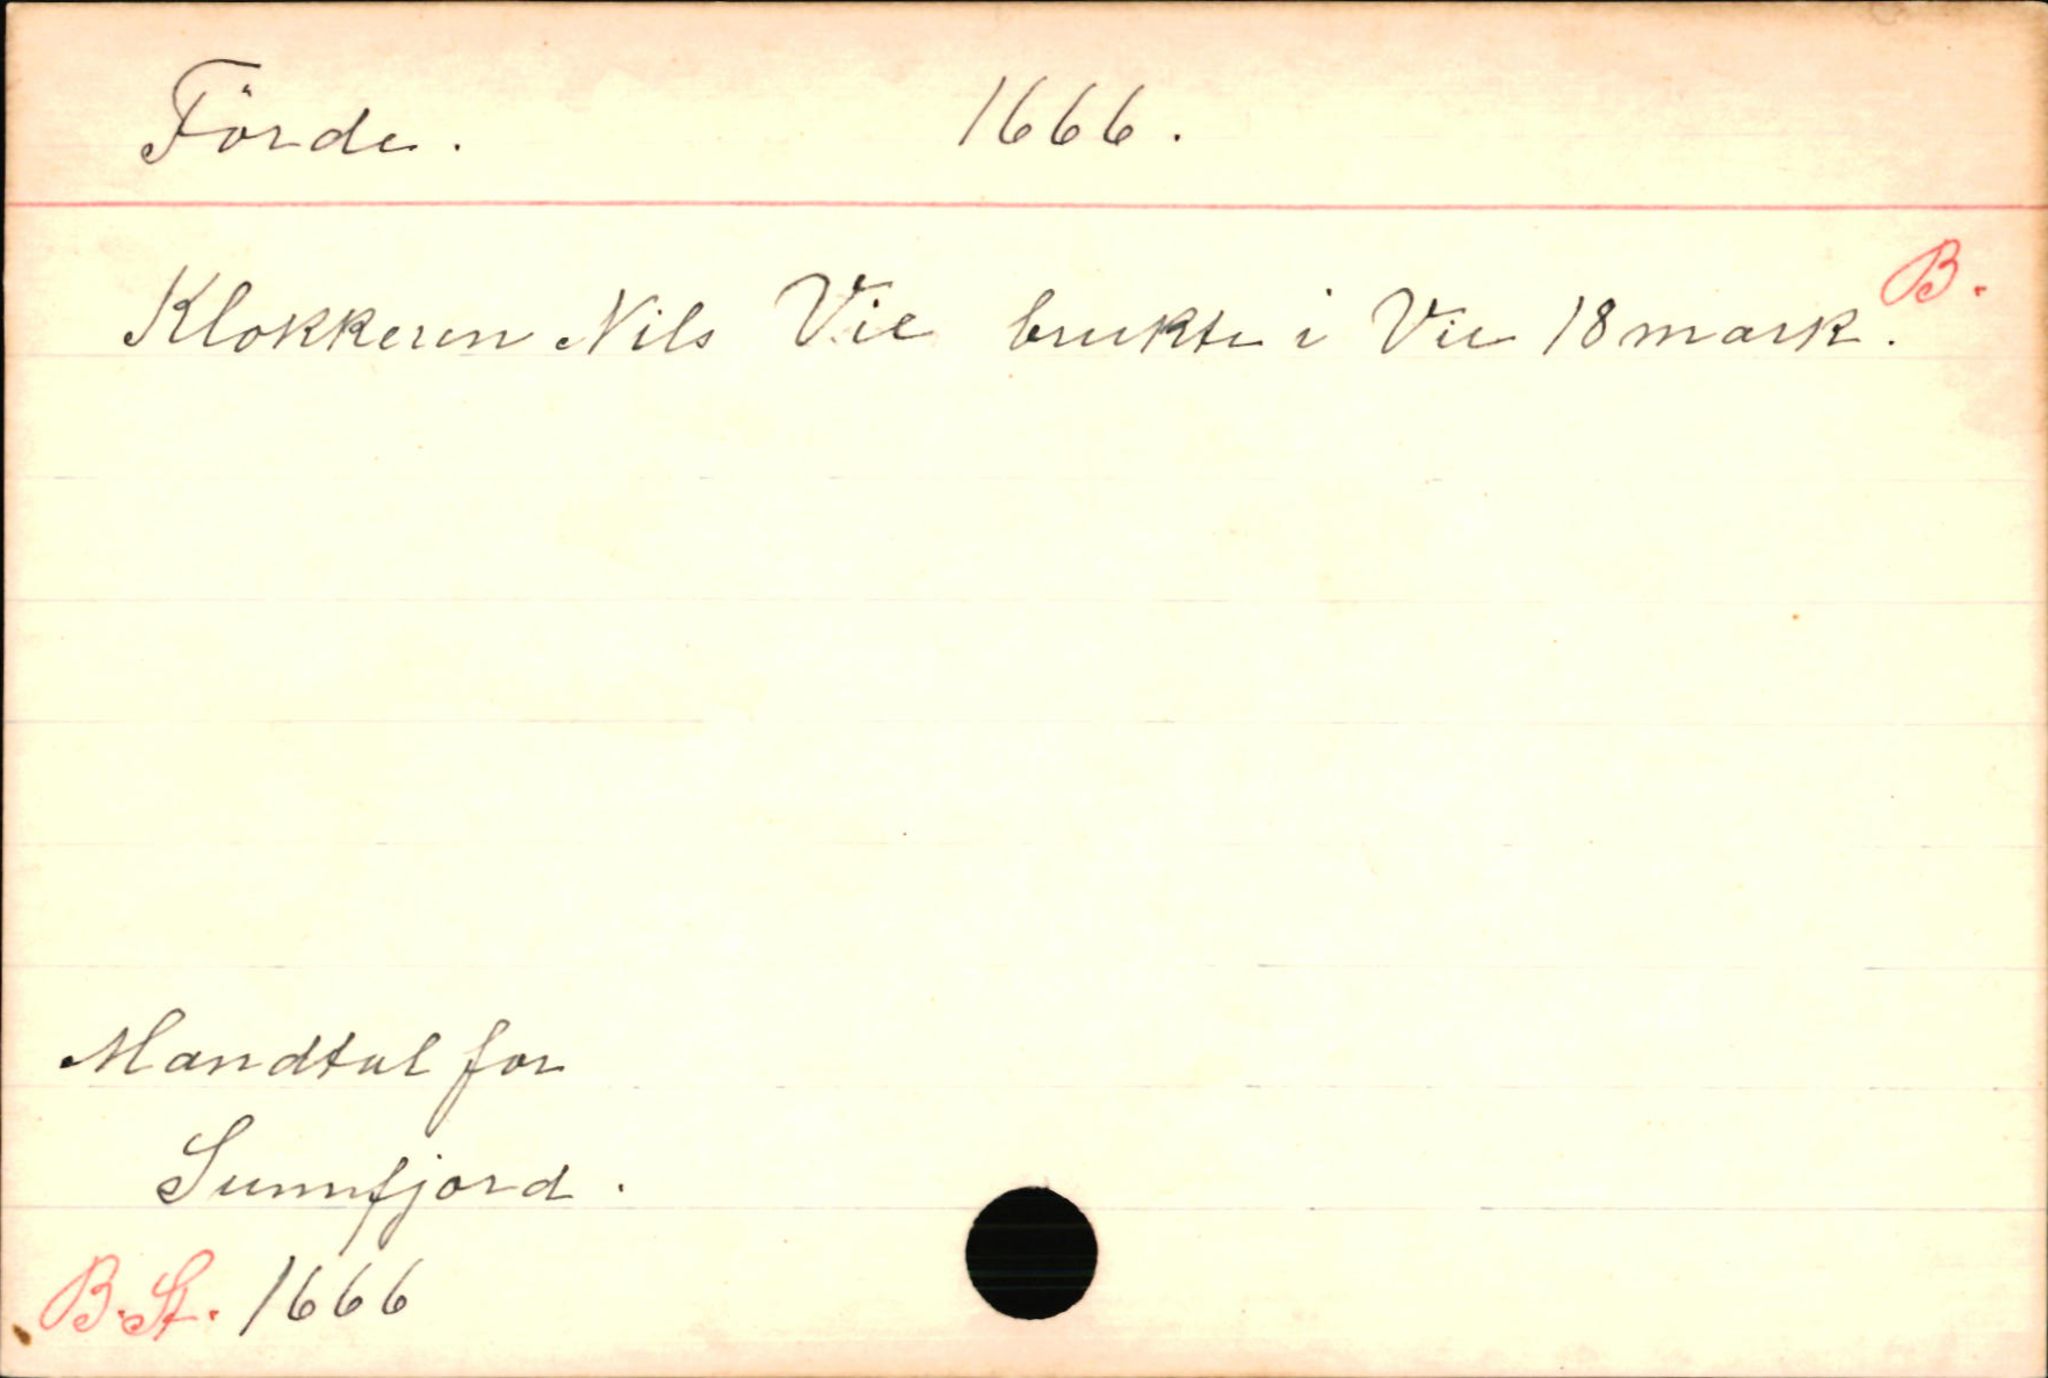 Förde. 1666.
B.
Klokkeren Nils Vie brukte i Vie 18 mark.
Mandtal for
Sunnfjord.
B. St. 1666